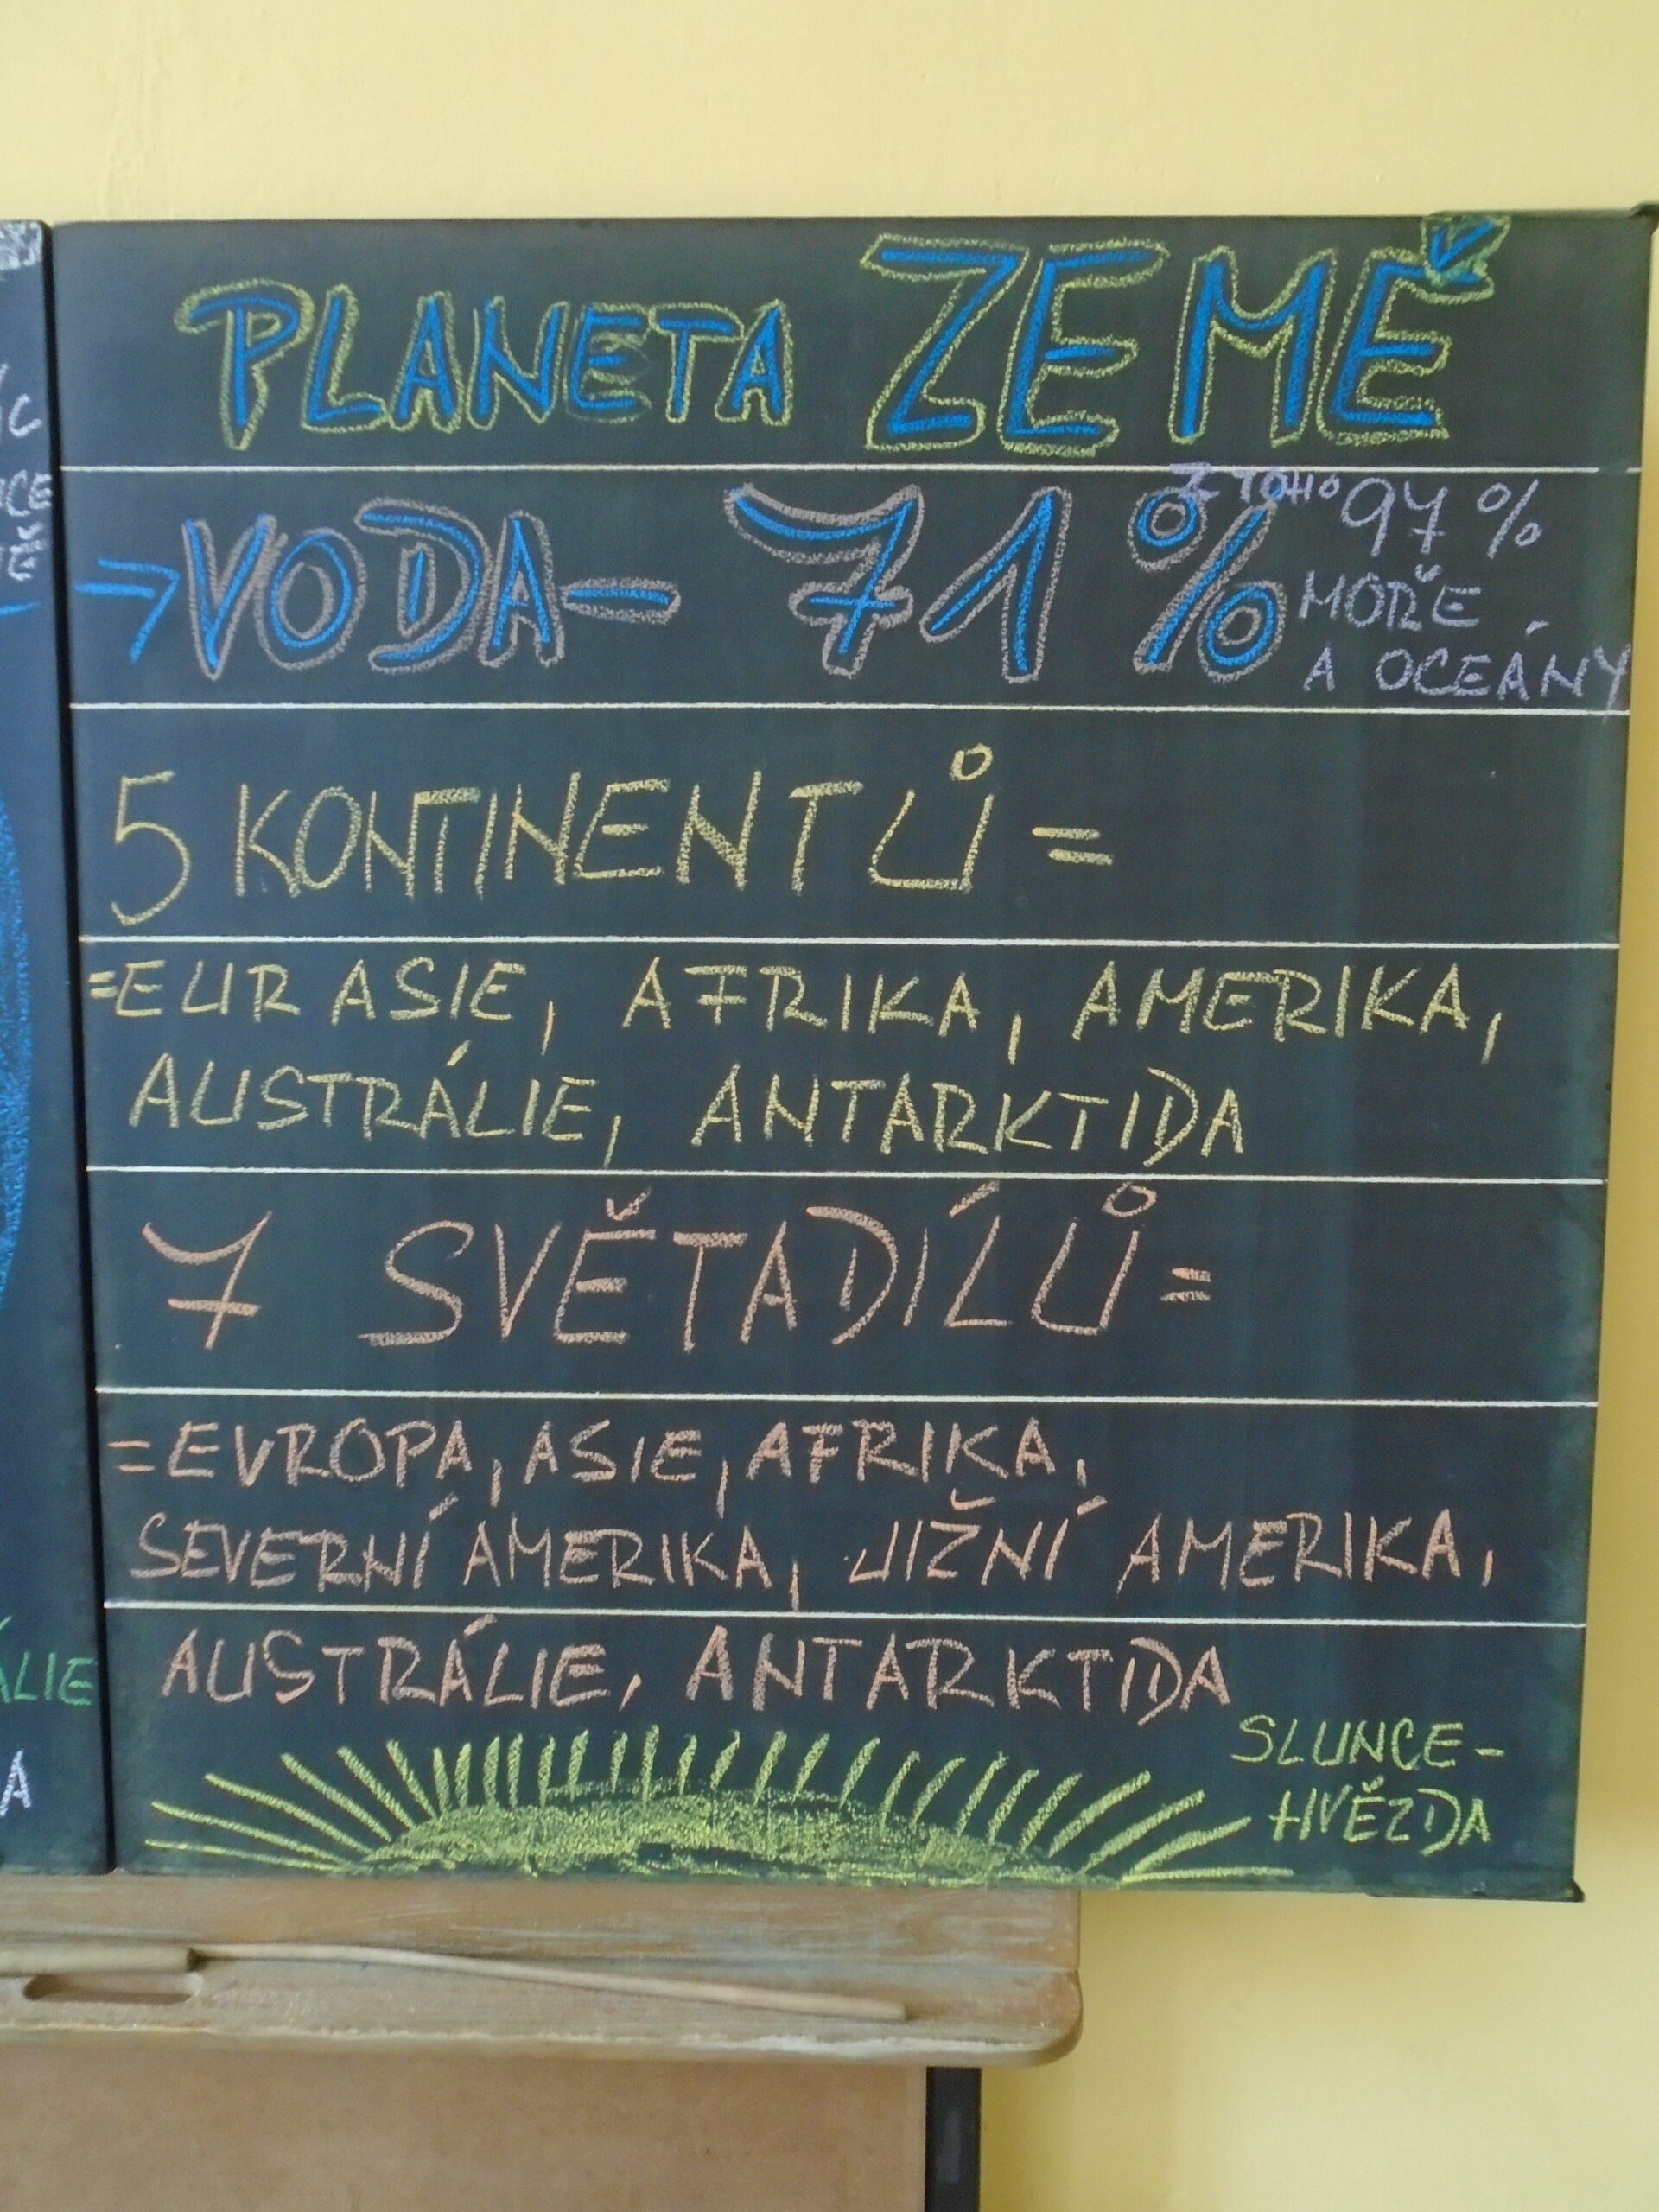 PLANETA ZEMĚ
→ VODA - 71% Z TOHO 97%
MOŘE
A OCEÁNY
5 KONTINENTŮ =
=EURASIE, AFRIKA, AMERIKA,
AUSTRÁLIE, ANTARKTIDA
7 SVĚTADÍLŮ =
=EVROPA, ASIE, AFRIKA,
SEVERNÍ AMERIKA, JIŽNÍ AMERIKA,
AUSTRÁLIE, ANTARKTIDA
SLUNCE-
HVĚZDA